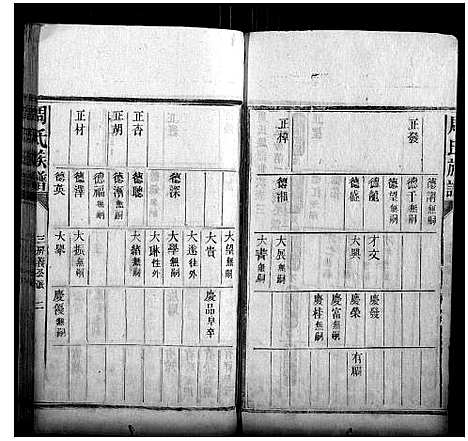 周氏族譜
正發
德謨無嗣
德千無嗣
德望無嗣
德龍
德盛
正樟
德湘
才文
大興
大展無嗣
大書無嗣
慶發
慶榮
慶富無嗣
慶桂無嗣
有順
德深
正吉
德聰
正胡
德漸無嗣
德福無嗣
正材
德澤
德英
大望無嗣
大貴
大學無嗣
大達往外
大琳往外
大緒無嗣
大振無嗣
大舉
慶品早卒
慶優無嗣
周氏族譜